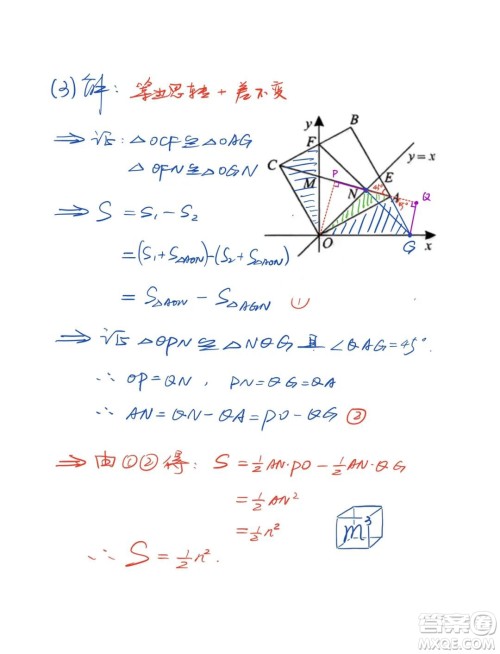 (3) 解: 等边思转 + 差不变
⇒ 证: △OCF≌△OAG
△OFN≌△OGN
⇒ S = S₁ - S₂
= (S₁+S△AON)-(S₂+S△AON)
= S△AON - S△AGN ①
⇒ 证 △OPN≌△NQG 且 ∠QAG=45°.
∴ OP=QN, PN=QG=QA
∴ AN=QN-QA=PO-QG ②
⇒ 由①②得: S=½AN·PO-½AN·QG
=½AN²
=½n²
∴ S=½n².
m³
y
B
F
y=x
C
M
P
E
45°
N
A
Q
45°
O
G
x
答案圈
MXQE.COM